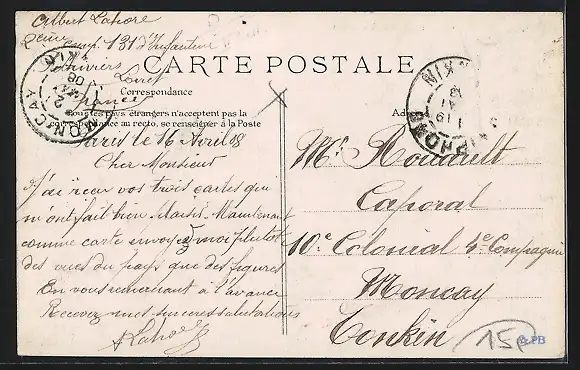 Albert Lahore
2eme Comp. 131 d'Infanterie
Loiret
France
CARTE POSTALE
Correspondance
Tous les pays étrangers n'acceptent pas la
correspondance au recto, se renseigner à la Poste
MONCAY
HAIPHONG
Paris le 16 Avril 08
Cher Monsieur
J'ai reçu vos trois cartes qui
m'ont fait bien Plaisir. Maintenant
comme carte envoyez moi plutot
des vues du pays que des figures
En vous remerciant à l'avance
Recevez mes sinceres salutations
A Lahore
Mr. Rouault
Caporal
10e Colonial 4e Compagnie
Moncay
Tonkin
15
PB